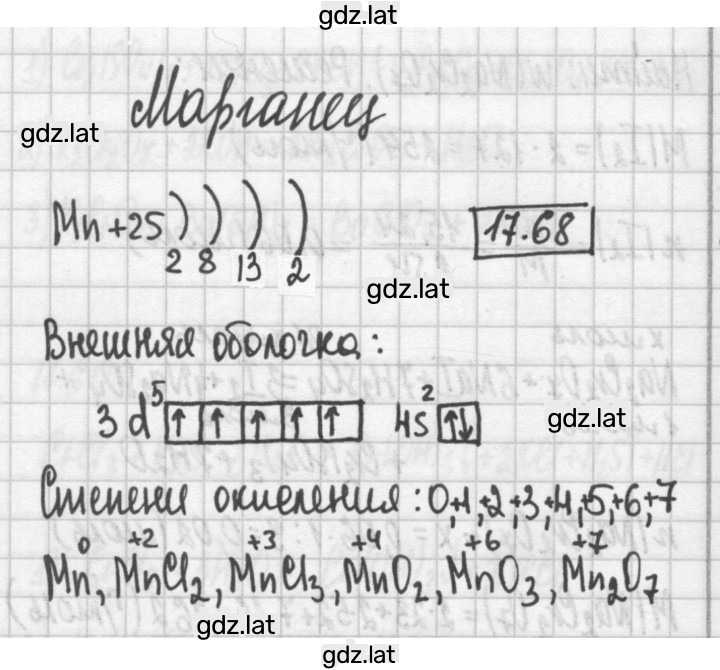 gdz.lat
Марганец
gdz.lat
Mn +25 ) ) ) ) 17.68
2 8 13 2
gdz.lat
Внешняя оболочка:
3d⁵ ↑ ↑ ↑ ↑ ↑ 4s² ↑↓
gdz.lat
Степени окисления: 0,+1,+2,+3,+4,+5,+6,+7
0 +2 +3 +4 +6 +7
Mn, MnCl₂, MnCl₃, MnO₂, MnO₃, Mn₂O₇
gdz.lat
gdz.lat